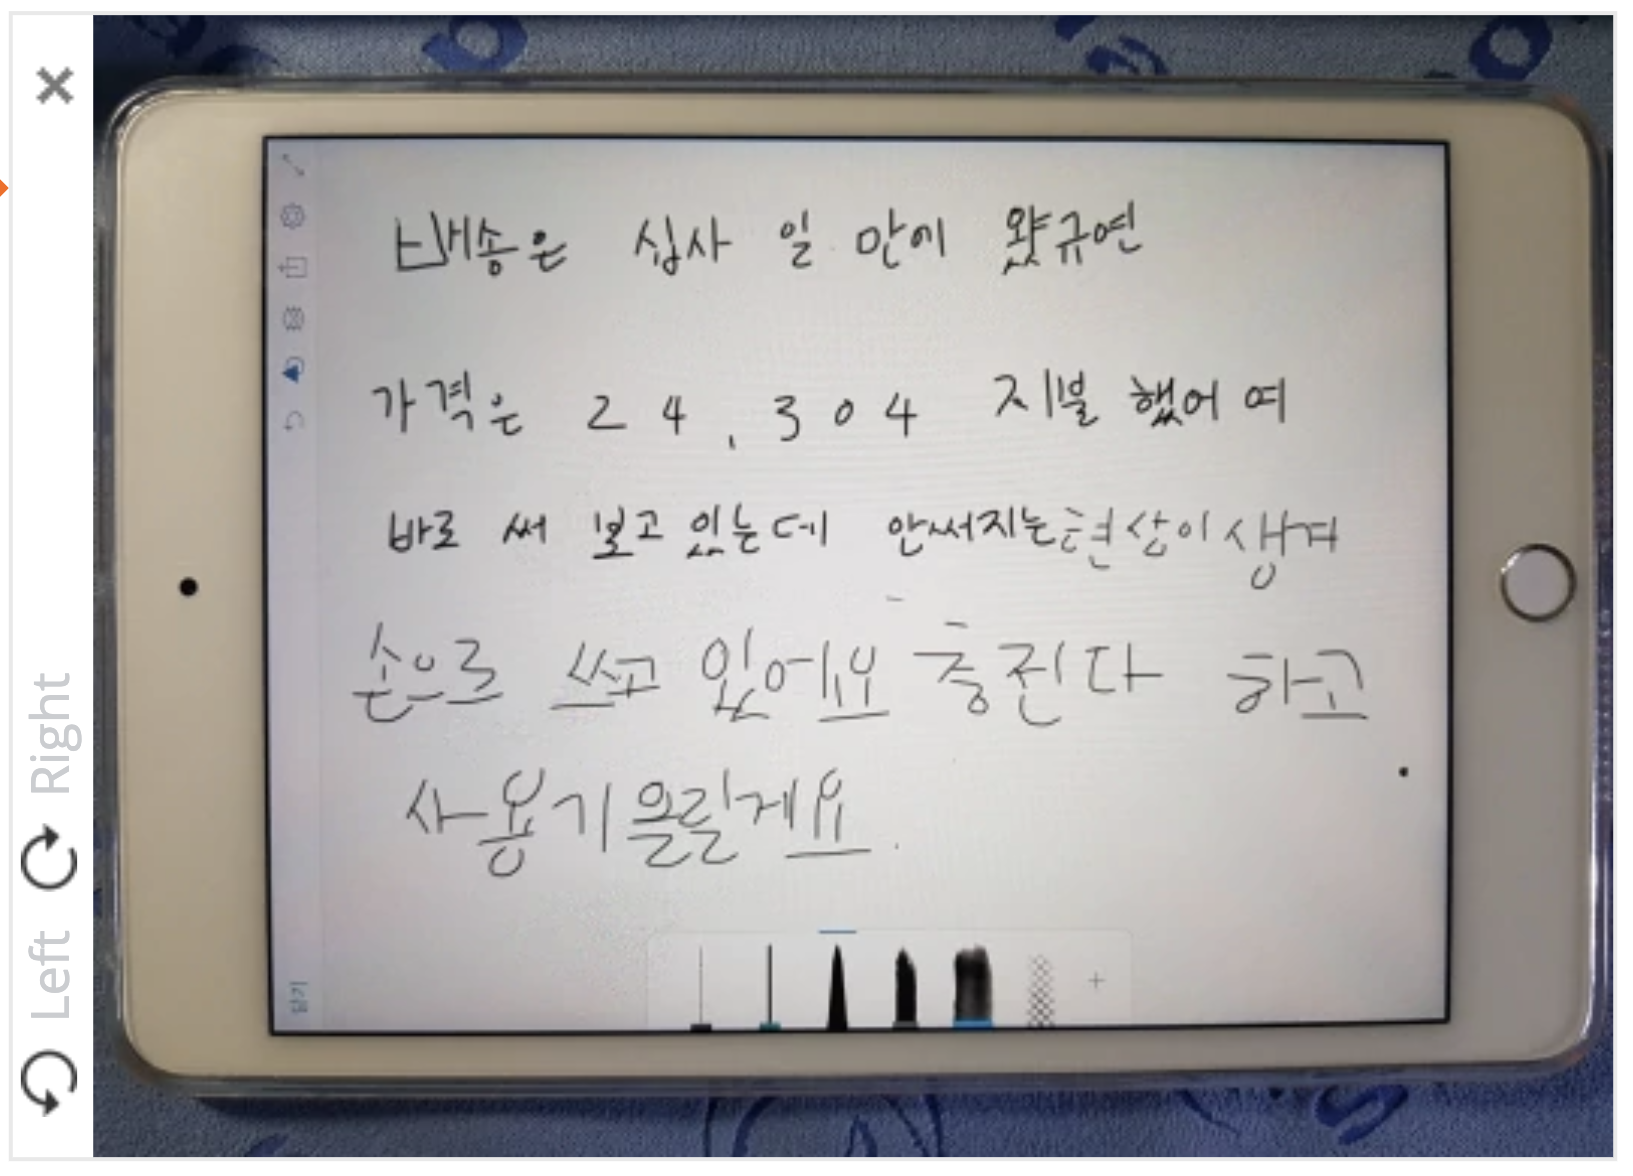 배송은 십사 일 만에 왔규연
가격은 24,304 지불 했어여
바로 써 보고 있는데 안써지는 현상이 생겨
손으로 쓰고 있어요 충전다 하고
사용기 올릴게요.
완료
Left Right